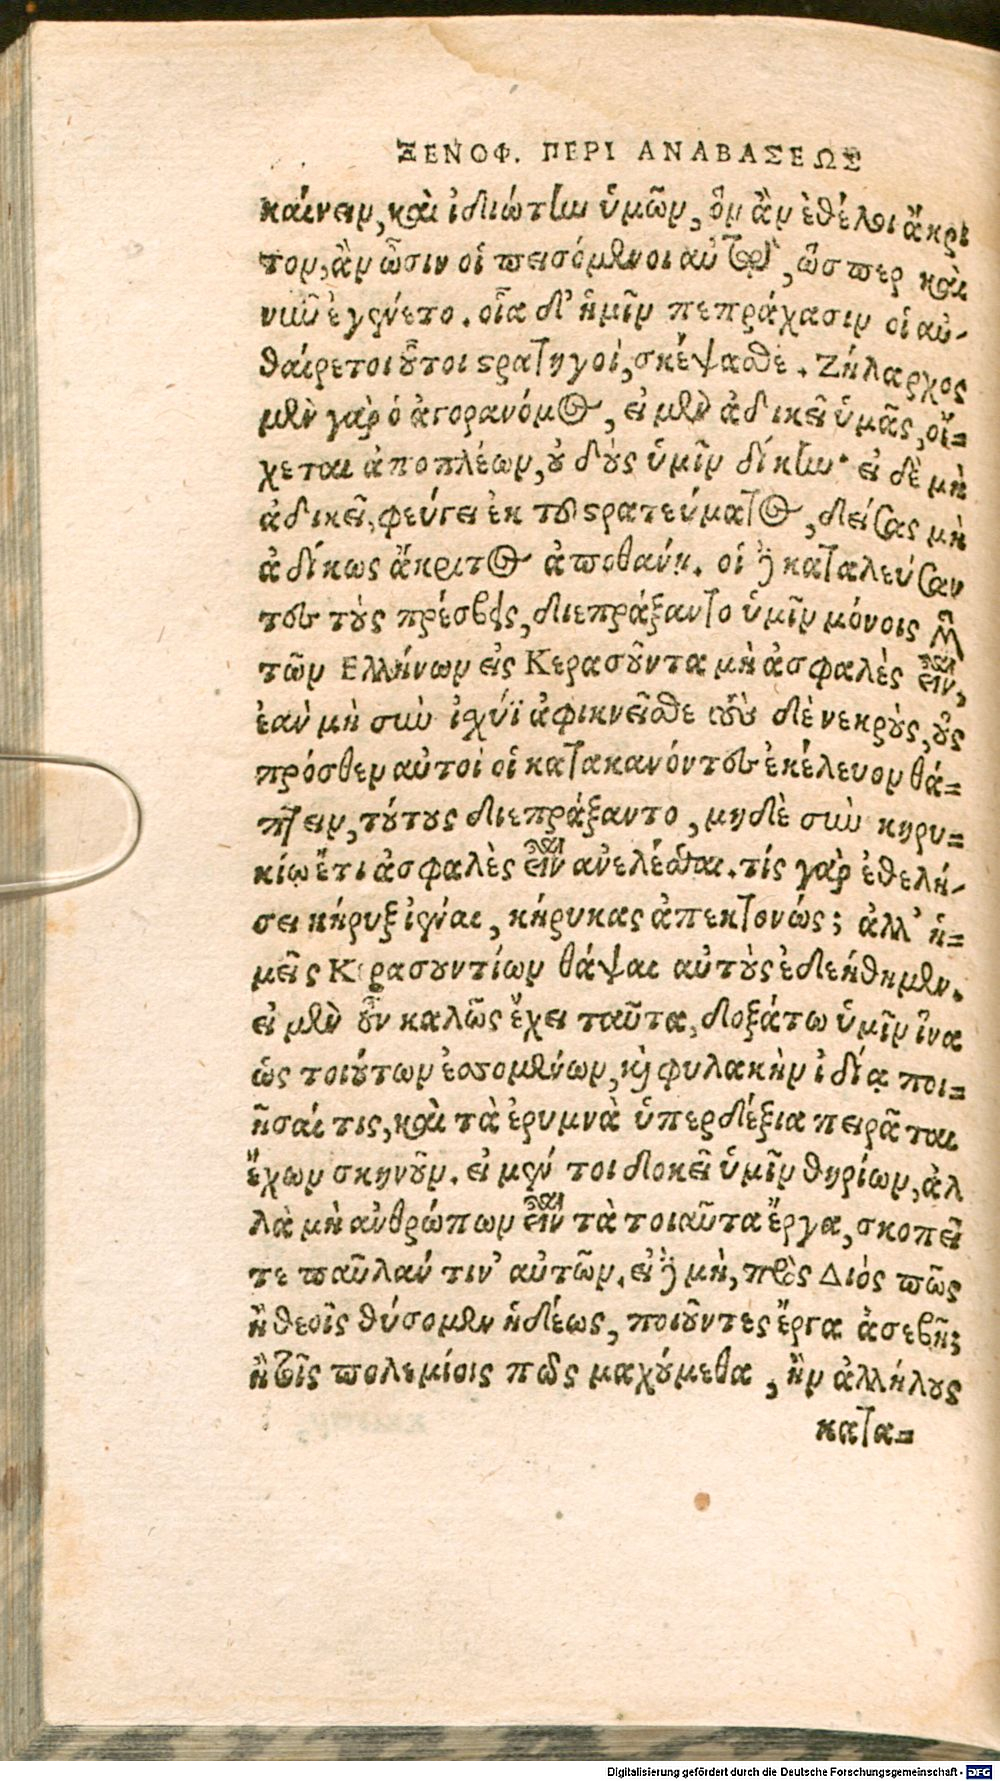 ΞΕΝΟΦ. ΠΕΡΙ ΑΝΑΒΑΣΕΩΣ
καίνειν, καὶ ἰδιώτην ὑμῶν, ὃν ἂν ἐθέλοι ἄκρι
τον, ἂν ὦσιν οἱ πεισόμενοι αὐτῷ, ὥσπερ καὶ
νῦν ἐγένετο. οἷα δ' ἡμῖν πεπράχασιν οἱ αὐ-
θαίρετοι οὗτοι στρατηγοί, σκέψασθε. Ζήλαρχος
μὲν γὰρ ὁ ἀγορανόμος, εἰ μὲν ἀδικεῖ ὑμᾶς, οἴ=
χεται ἀποπλέων, οὐ δοὺς ὑμῖν δίκην· εἰ δὲ μὴ
ἀδικεῖ, φεύγει ἐκ τοῦ στρατεύματος, δείσας μὴ
ἀδίκως ἄκριτος ἀποθάνῃ. οἱ δὲ καταλεύσαν
τες τοὺς πρέσβεις, διεπράξαντο ὑμῖν μόνοις μὲν
τῶν Ελλήνων εἰς Κερασοῦντα μὴ ἀσφαλὲς εἶναι,
ἐὰν μὴ σὺν ἰχύϊ ἀφικνεῖσθε τοὺς δὲ νεκροὺς, οὓς
πρόσθεν αὐτοὶ οἱ κατακανόντες ἐκέλευον θά-=
πτειν, τούτους διεπράξαντο, μηδὲ σὺν κηρυ-=
κίῳ ἔτι ἀσφαλὲς εἶναι ἀνελέσθαι. τίς γὰρ ἐθελή-
σει κήρυξ ἰέναι, κήρυκας ἀπεκτονώς; ἀλλ' ἡ-=
μεῖς Κερασουντίων θάψαι αὐτοὺς ἐδεήθημεν.
εἰ μὲν οὖν καλῶς ἔχει ταῦτα, δοξάτω ὑμῖν ἵνα
ὡς τοιούτων ἐσομένων, καὶ φυλακὴν ἰδίᾳ ποι-=
ῆσαί τις, καὶ τὰ ἐρυμνὰ ὑπερδέξια πειρᾶται
ἔχων σκηνοῦν. εἰ μέν τοι δοκεῖ ὑμῖν θηρίων, ἀλ
λὰ μὴ ἀνθρώπων εἶναι τὰ τοιαῦτα ἔργα, σκοπεῖ
τε παῦλάν τιν' αὐτῶν. εἰ δὲ μὴ, πρὸς Διός πῶς
ἢ θεοῖς θύσομεν ἡδέως, ποιοῦντες ἔργα ἀσεβῆ;
ἢ τοῖς πολεμίοις πῶς μαχούμεθα, ἢν ἀλλήλους
κατα=
Digitalisierung gefördert durch die Deutsche Forschungsgemeinschaft - DFG